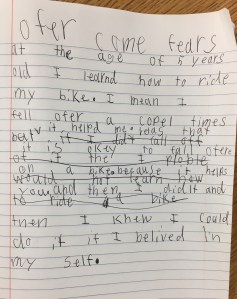 ofer come fears
at the age of 5 years
old I learnd how to ride
my bike. I mean I
fell ofer a copel times
but it helpd me. that
it if I did't fall off
it is okey to fall ofere
of if the I
on a bike. because it helps
would not learn how
you. and then I did it and
to ride a bike
then I knew I could
do it if I belived in
my self.